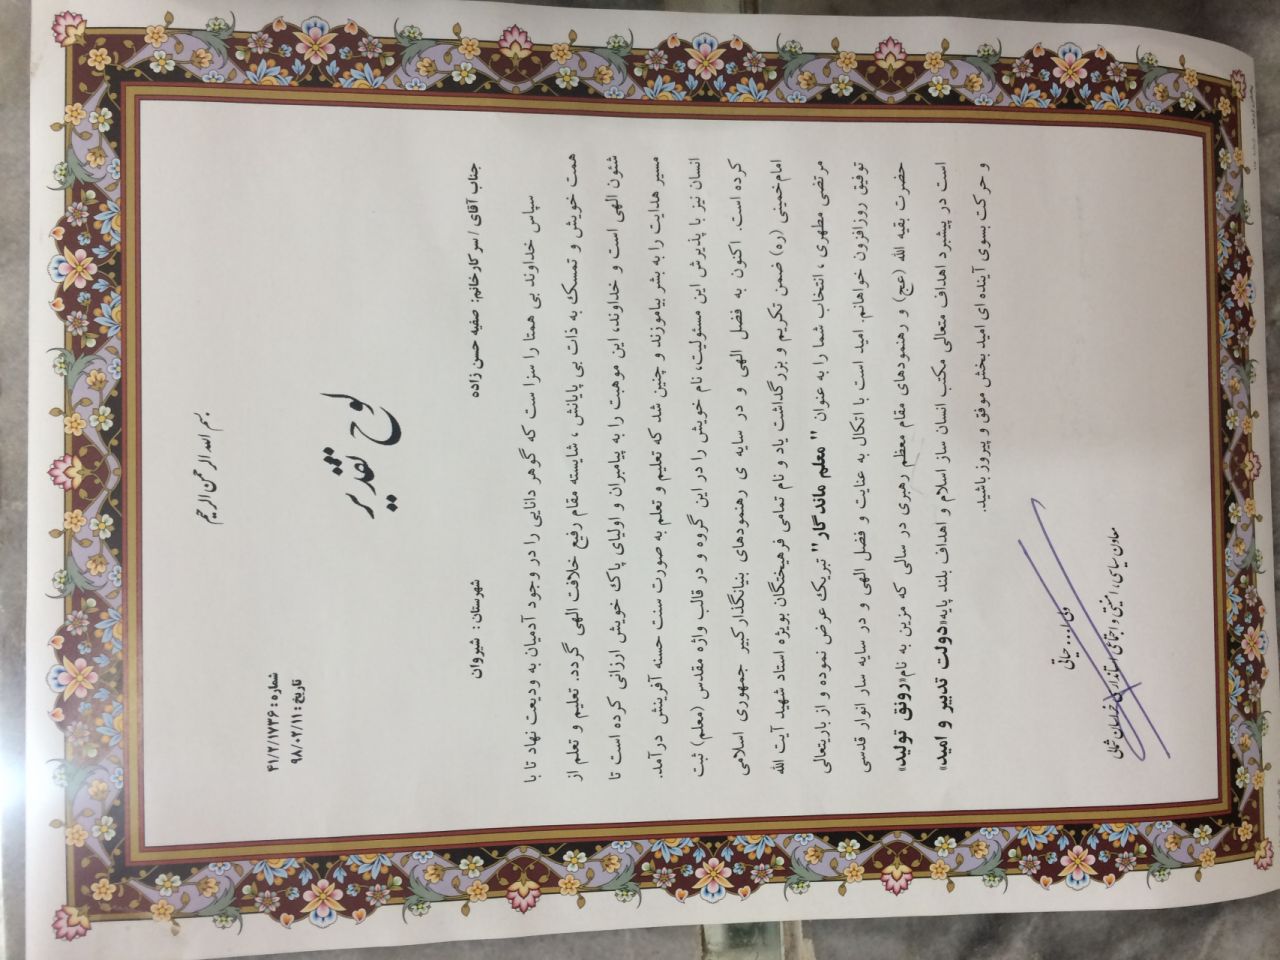 بسم الله الرحمن الرحیم
شماره: ۴۱/۲/۱۷۳۶
تاریخ: ۹۸/۰۲/۱۱
لوح تقدیر
جناب آقای / سرکارخانم: صفیه حسن زاده
شهرستان: شیروان
سپاس خداوند بی همتا را سزا ست که گوهر دانایی را در وجود آدمیان به ودیعت نهاد تا با
همت خویش و تمسک به ذات بی پایانش، شایسته مقام رفیع خلافت الهی گردد. تعلیم و تعلم از
شئون الهی است و خداوند، این موهبت را به پیامبران و اولیای پاک خویش ارزانی کرده است تا
مسیر هدایت را به بشر بیاموزند و چنین شد که تعلیم و تعلم به صورت سنت حسنه آفرینش درآمد.
انسان نیز با پذیرش این مسئولیت، نام خویش را در این گروه و در قالب واژه مقدس (معلم) ثبت
کرده است. اکنون به فضل الهی و در سایه ی رهنمودهای بنیانگذار کبیر جمهوری اسلامی
امام خمینی (ره) ضمن تکریم و بزرگداشت یاد و نام تمامی فرهیختگان بویژه استاد شهید آیت الله
مرتضی مطهری، انتخاب شما را به عنوان "معلم ماندگار" تبریک عرض نموده و از باریتعالی
توفیق روزافزون خواهانم. امید است با اتکال به عنایت و فضل الهی و در سایه سار انوار قدسی
حضرت بقیه الله (عج) و رهنمودهای مقام معظم رهبری در سالی که مزین به نام«رونق تولید»
است در پیشبرد اهداف متعالی مکتب انسان ساز اسلام و اهداف بلند پایه«دولت تدبیر و امید»
و حرکت بسوی آینده ای امید بخش موفق و پیروز باشید.
ولی ا... حیاتی
معاون سیاسی، امنیتی و اجتماعی استانداری خراسان شمالی